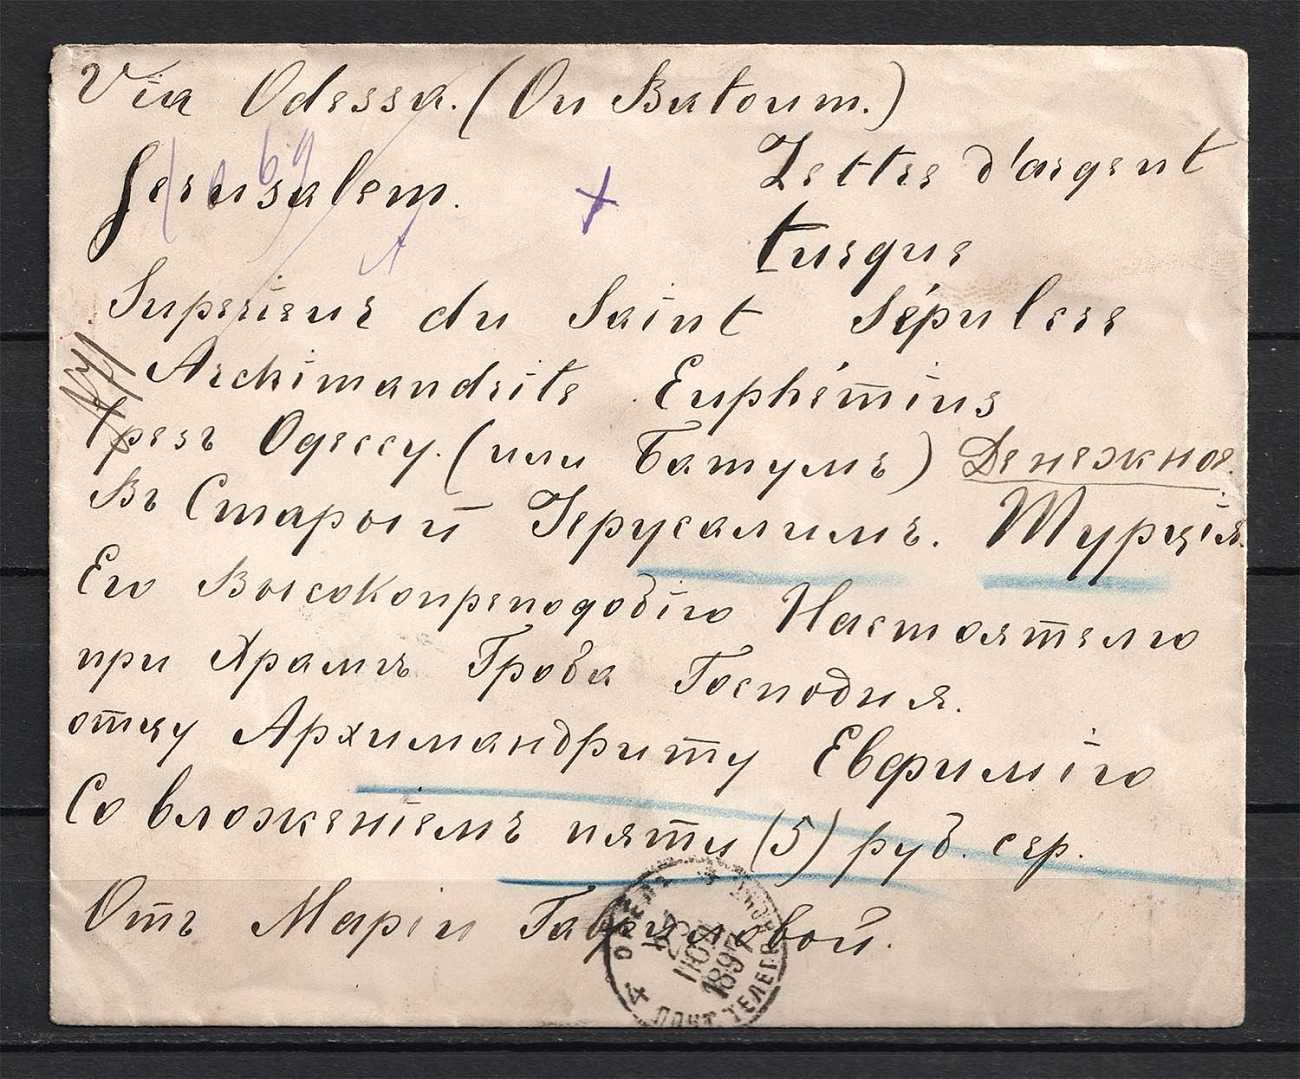 Via Odessa. (Ou Batoum.)
Jerusalem.
Lettre d'argent
turque
Superieur du Saint Sépulcre
Archimandrite Euphémius
Чрезъ Одессу. (или Батумъ) Денежное.
Въ Старый Іерусалимъ. Турція.
Его Высокопреподобію Настоятелю
при Храмѣ Гроба Господня.
отцу Архимандриту Евфимію
Со вложеніемъ пяти (5) руб. сер.
Отъ Маріи Гавриловой.
ОРЕЛЪ
1897
ПОЧТ. ТЕЛЕГР.